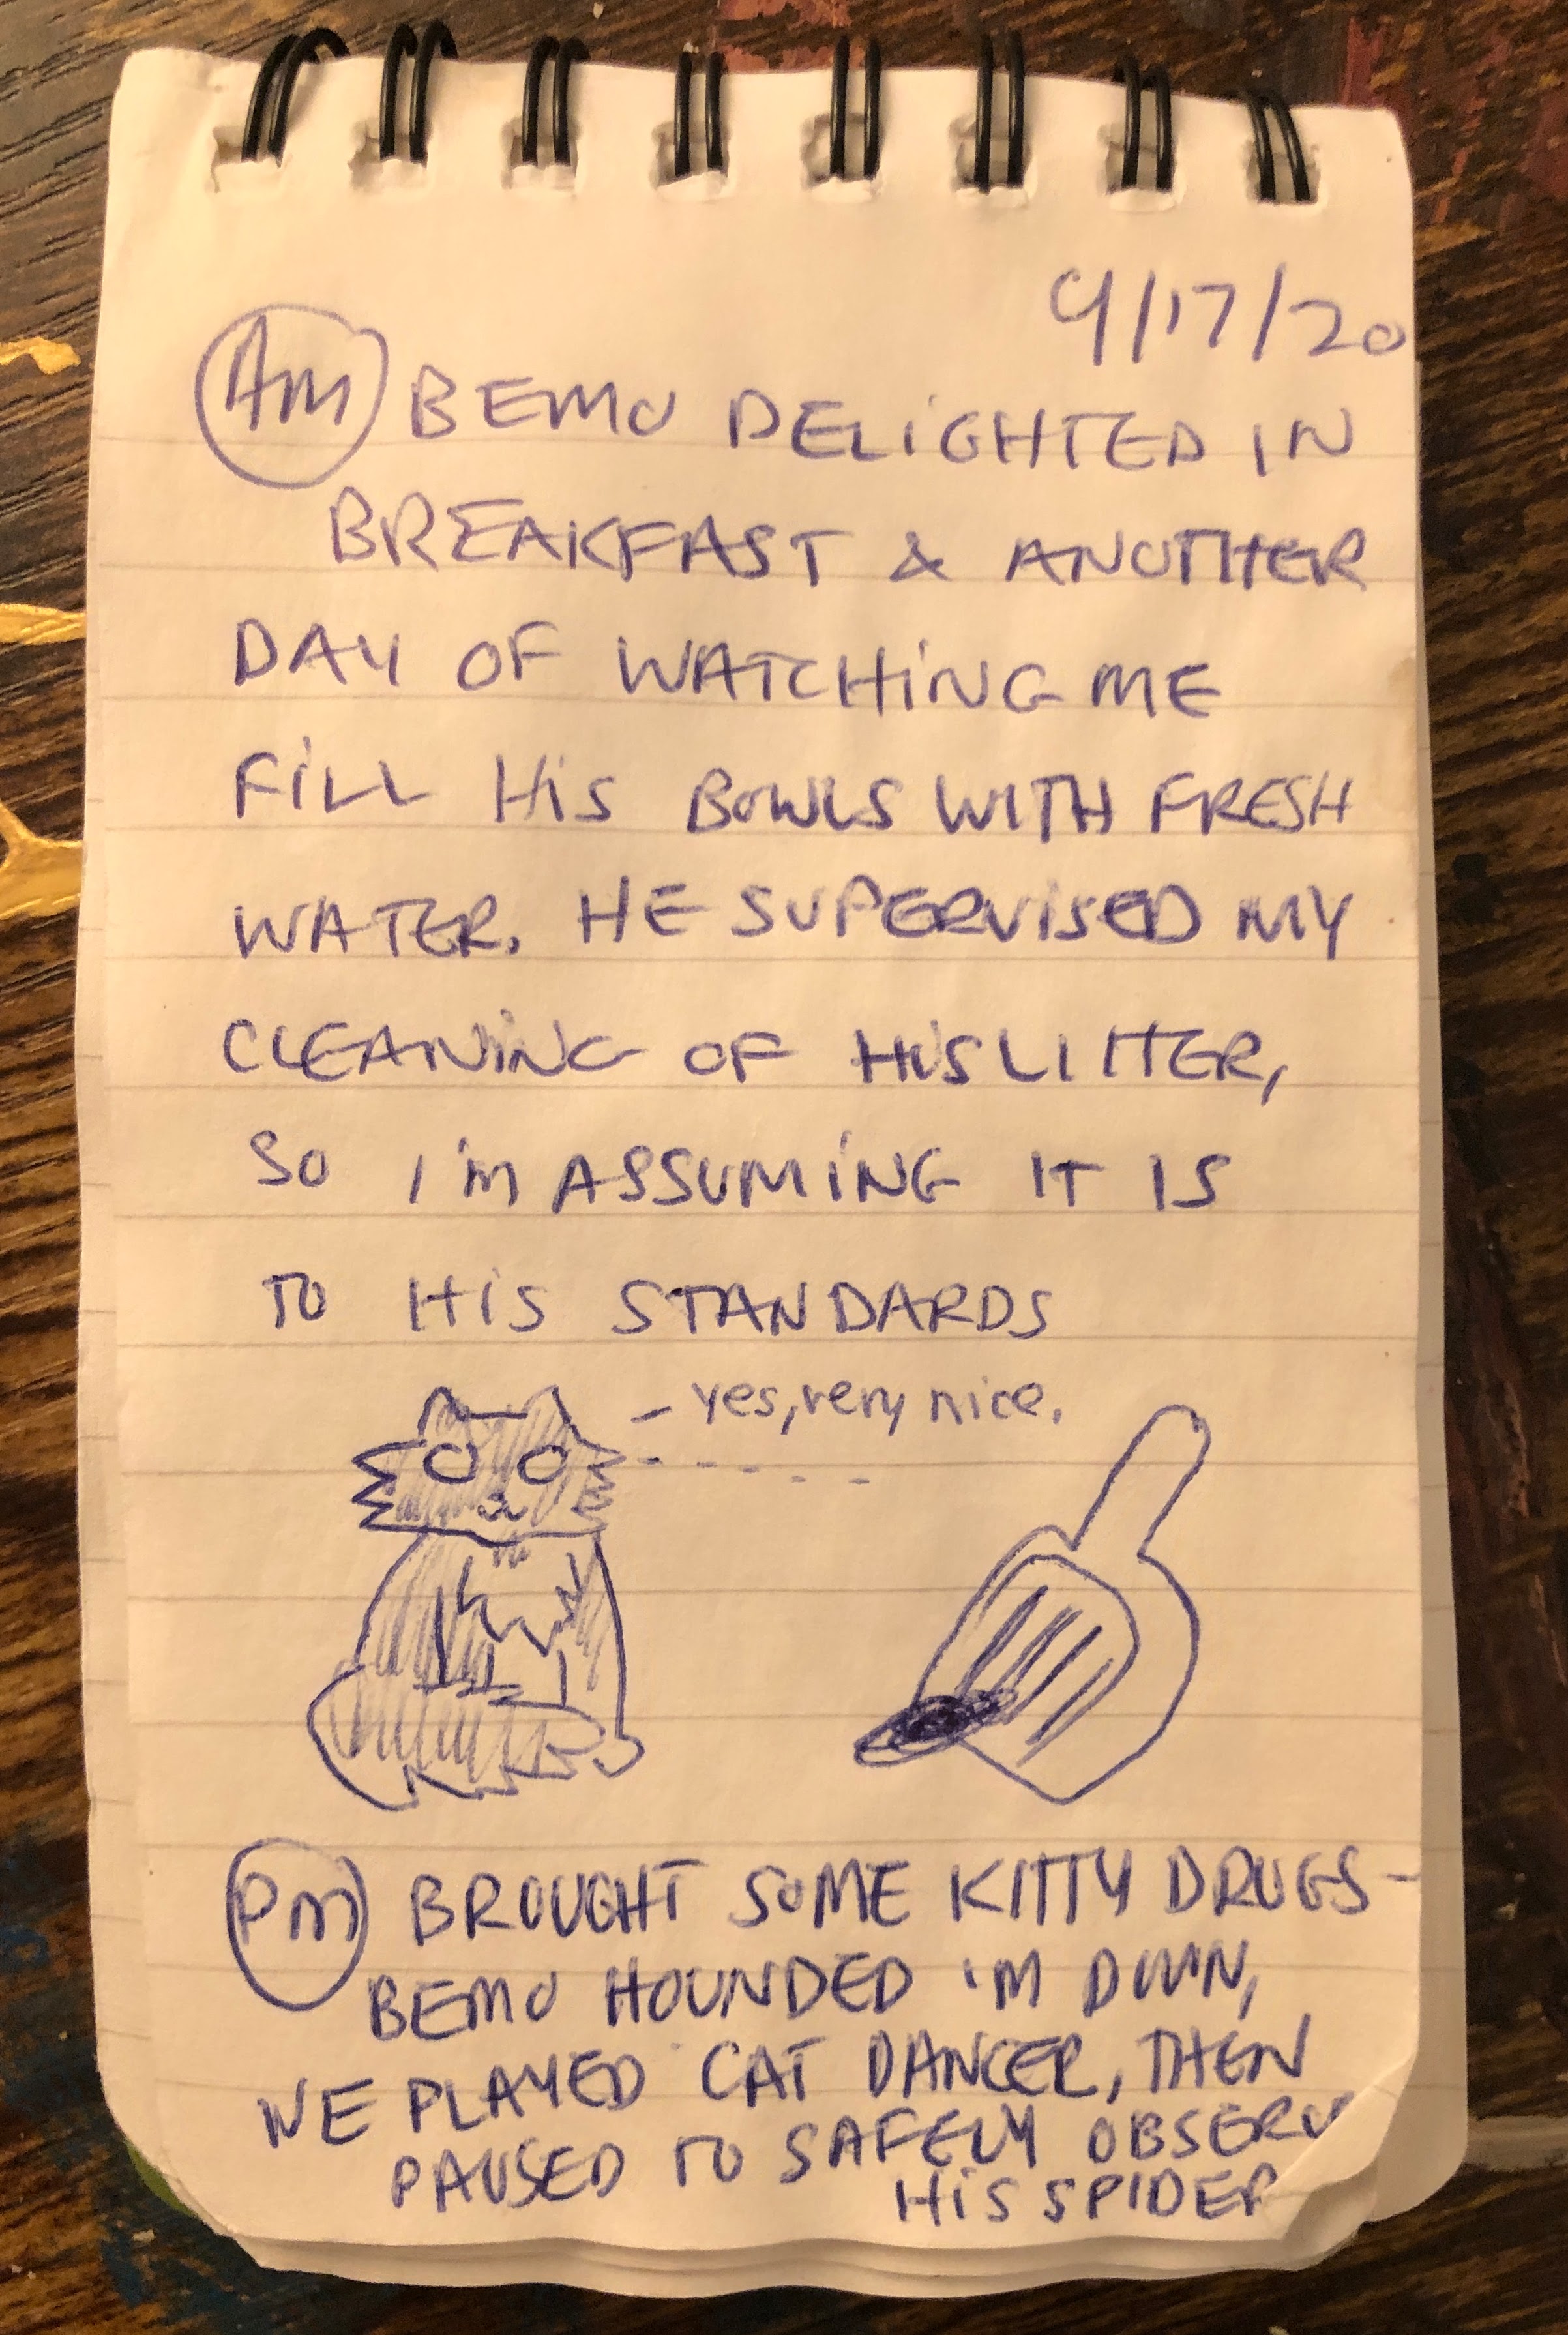 9/17/20
AM BEMO DELIGHTED IN
BREAKFAST & ANOTHER
DAY OF WATCHING ME
FILL HIS BOWLS WITH FRESH
WATER. HE SUPERVISED MY
CLEANING OF HIS LITTER,
SO I'M ASSUMING IT IS
TO HIS STANDARDS
- yes, very nice.
PM BROUGHT SOME KITTY DRUGS-
BEMO HOUNDED 'M DOWN,
WE PLAYED CAT DANCER, THEN
PAUSED TO SAFELY OBSERV
HIS SPIDER